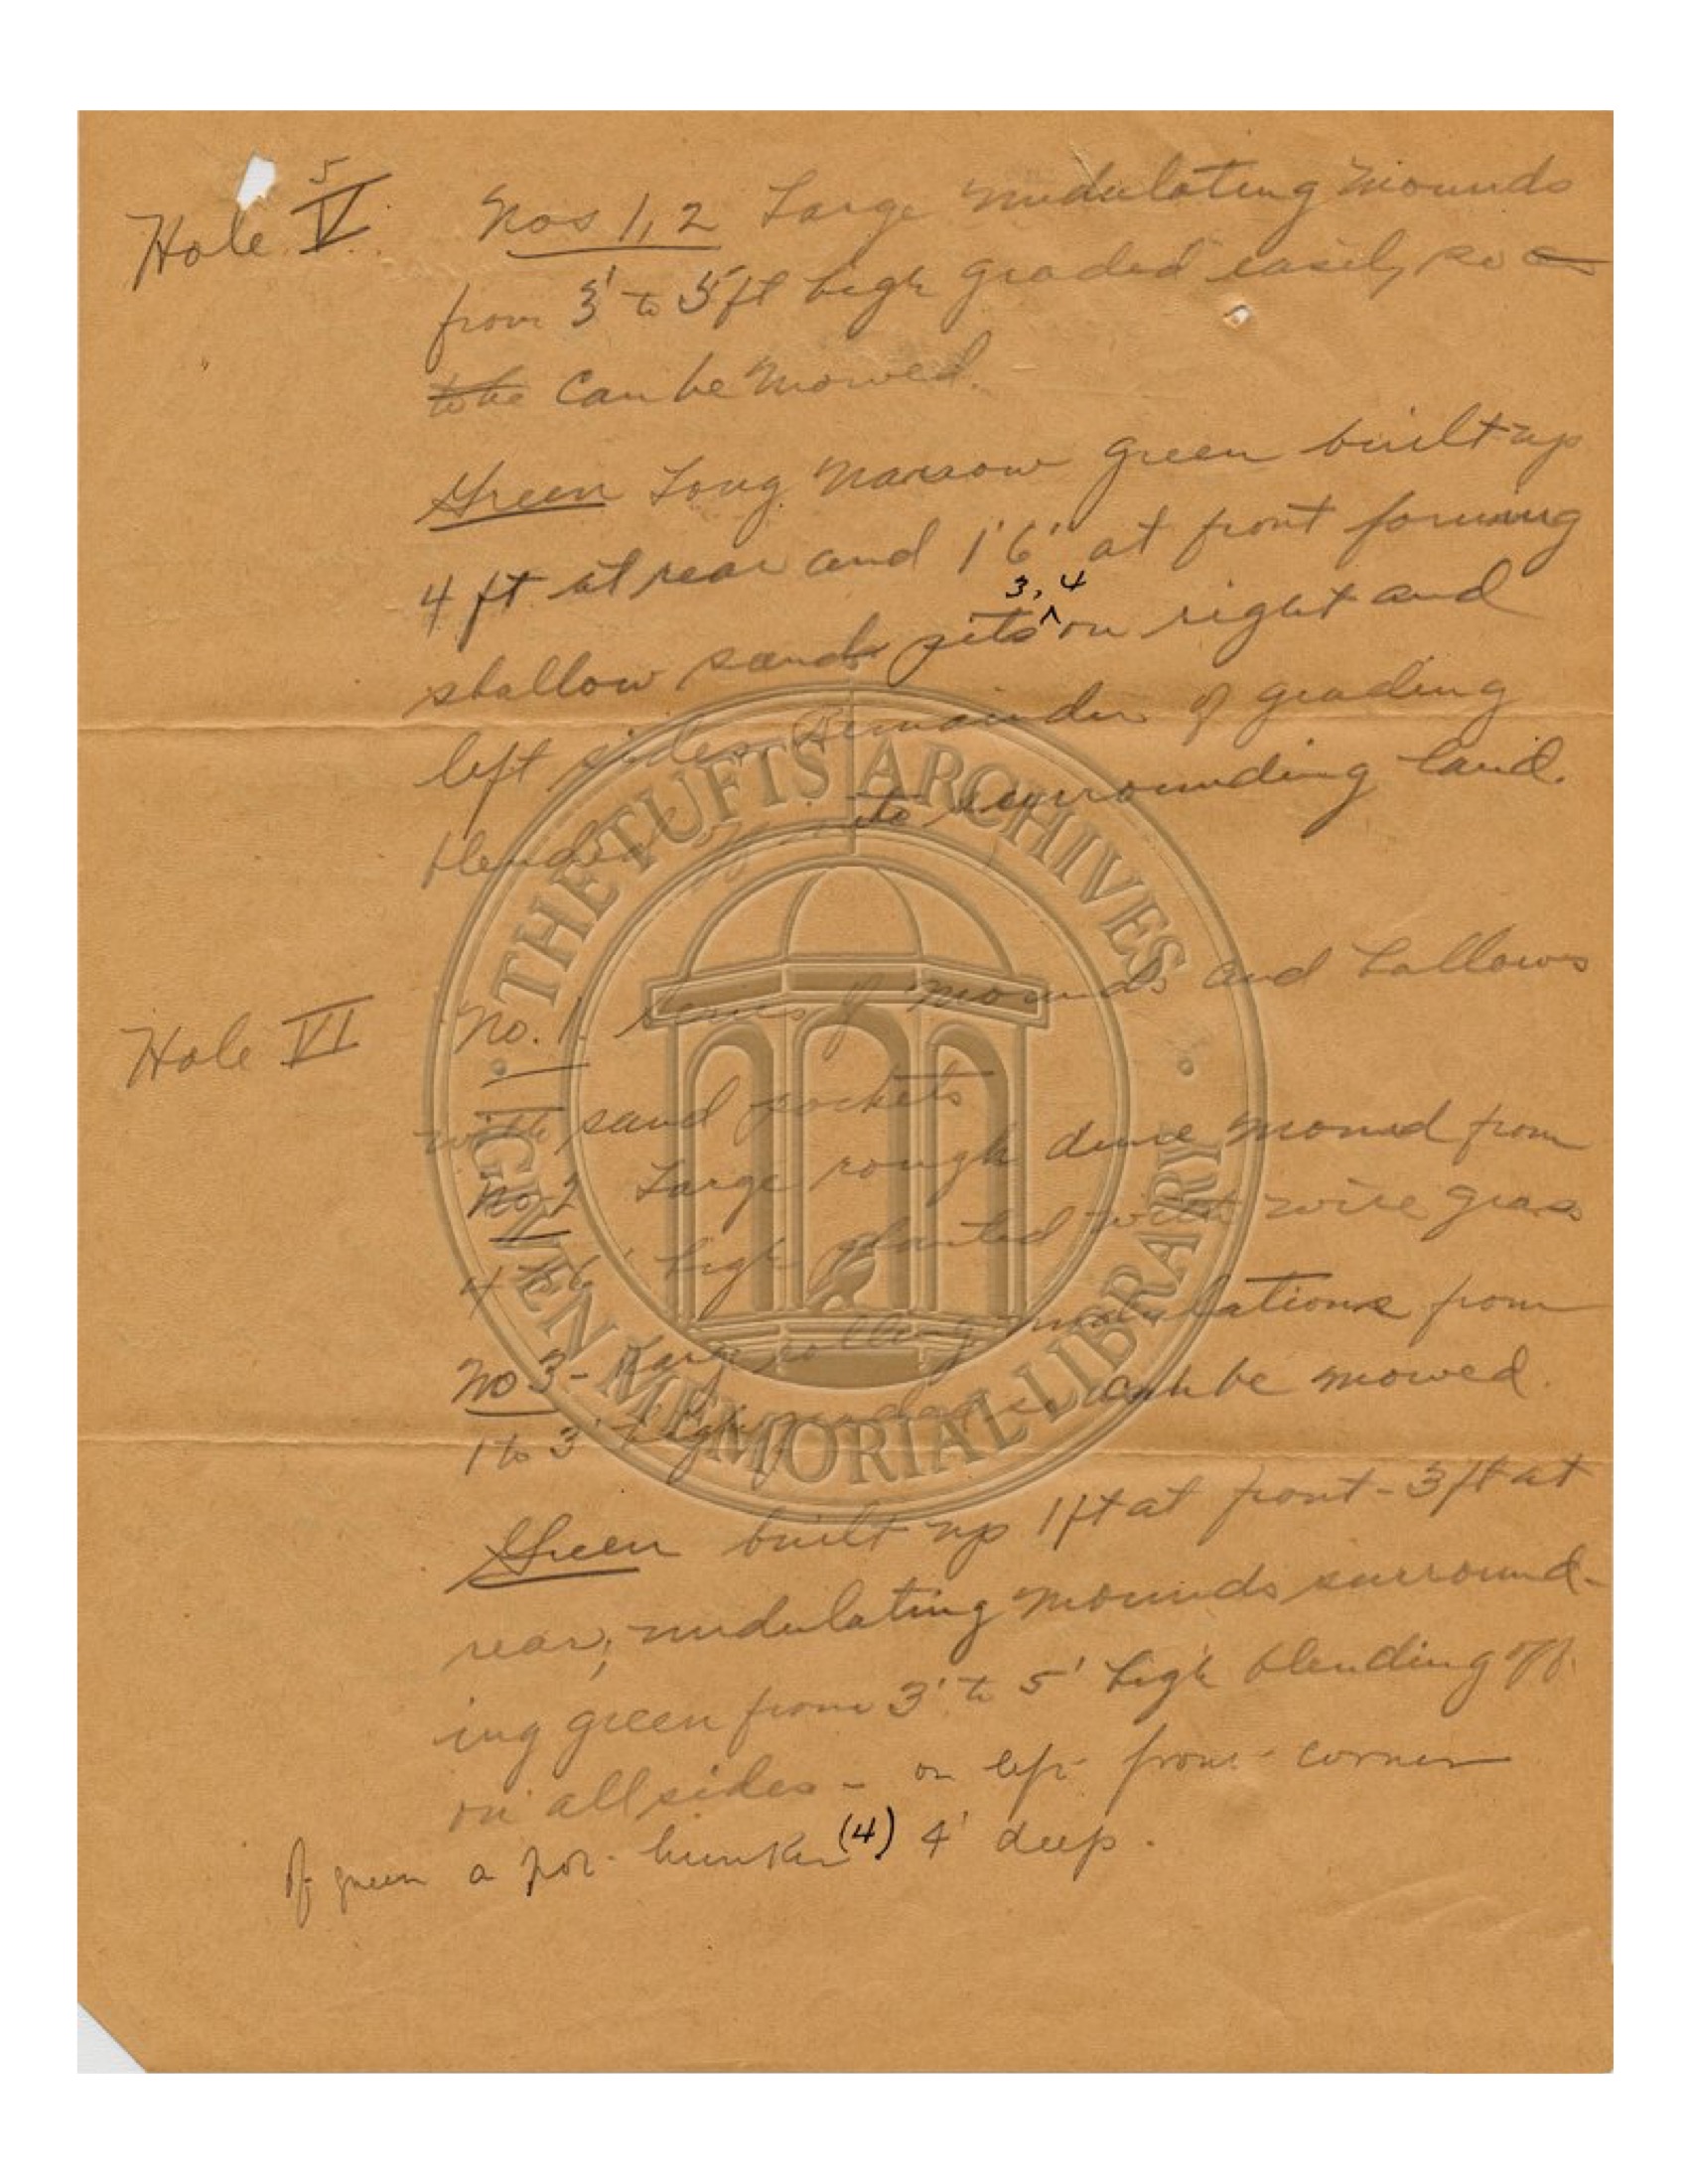 5
Hole V. Nos 1, 2 Large undulating mounds
from 3' to 5' ft high graded easily so as
to be Can be mowed.
Green Long narrow green built up
4 ft at rear and 1'6" at front forming
3, 4
shallow sand pits ^ on right and
left sides. Remainder of grading
blending into surrounding land.
Hole VI No. 1. series of mounds and hollows
with sand pockets
No-2 Large rough dune mound from
4 to 6' high planted with wire grass
No 3- Large rolling undulations from
1 to 3' high so can be mowed.
Green built up 1 ft at front - 3 ft at
rear, undulating mounds surround-
ing green from 3' to 5' high blending off
on all sides - on left front corner
of green a pot bunker (4) 4' deep.
THE TUFTS ARCHIVES
GIVEN MEMORIAL LIBRARY